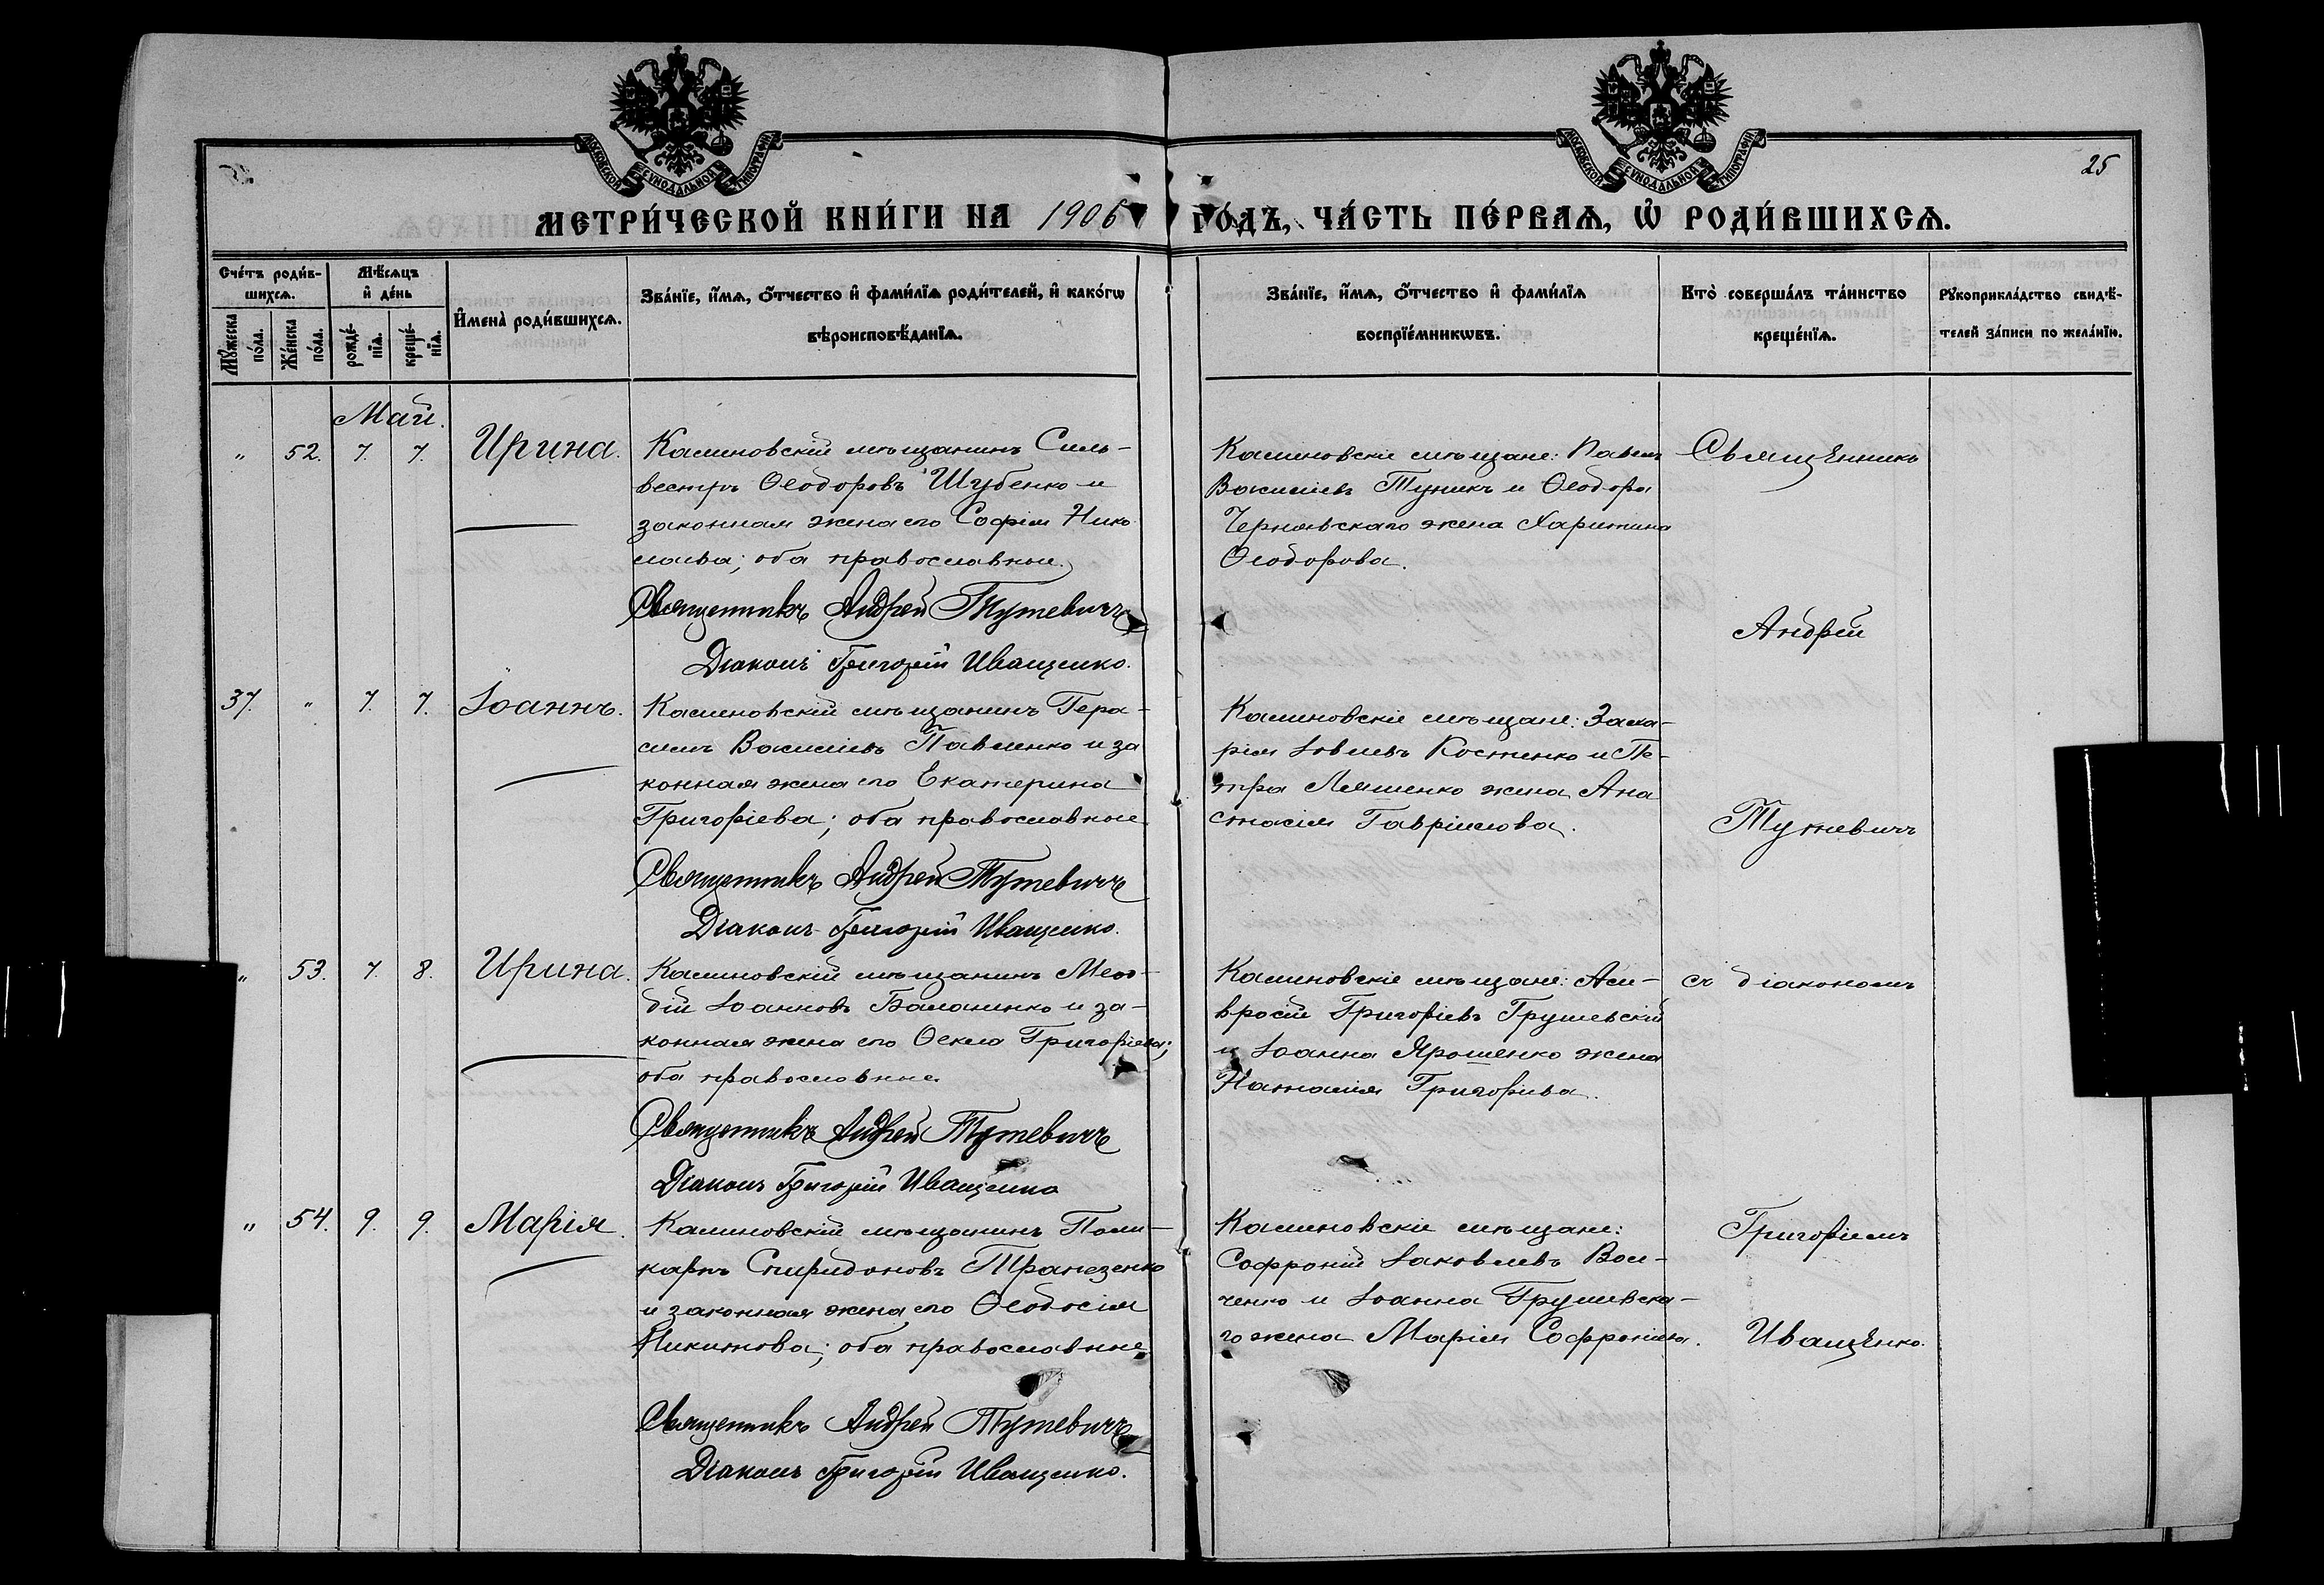 МОСКОВСКОЙ СѴНОДАЛЬНОЙ ТИПОГРАФІИ
МОСКОВСКОЙ СѴНОДАЛЬНОЙ ТИПОГРАФІИ
25
МЕТРИ́ЧЕСКОЙ КНИ́ГИ НА 1906 ГО́ДЪ, ЧА́СТЬ ПЕ́РВАѦ, Ѡ҆ РОДИ́ВШИХСѦ.
Сче́тъ роди́в-
шихсѧ.
Мꙋ́жеска
по́ла.
Же́нска
по́ла.
Мѣ́сѧцъ
и҆ де́нь
рожде́-
нїѧ.
креще́-
нїѧ.
И҆мена̀ роди́вшихсѧ.
Зва́нїе, и҆́мѧ, ѻ҆́тчество и҆ фами́лїѧ роди́телей, и҆ како́гѡ
вѣроисповѣ́данїѧ.
Зва́нїе, и҆́мѧ, ѻ҆́тчество и҆ фами́лїѧ
воспрїе́мникѡвъ.
Кто̀ соверша́лъ та́инство
креще́нїѧ.
Рꙋкоприкла́дство свидѣ́-
телей за́писи по жела́нїю.
Май.
" 52. 7. 7. Ирина.
Калиновскій мѣщанинъ Силь-
вестръ Ѳеодоровъ Шубенко и
законная жена его Софія Нико
лаева; оба православные.
Священникъ Андрей Тутевичъ
Діаконъ Григорій Иващенко.
Калиновскіе мѣщане: Павелъ
Василіевъ Туникъ и Ѳеодора
Чернявскаго жена Харитина
Ѳеодорова.
Священникъ
Андрей
37. " 7. 7. Іоаннъ.
Калиновскій мѣщанинъ Гера-
симъ Василіевъ Павленко и за
конная жена его Екатерина
Григоріева; оба православные
Священникъ Андрей Тутевичъ
Діаконъ Григорій Иващенко.
Калиновскіе мѣщане: Заха-
рія Іовлевъ Костенко и Пе-
тра Ляшенко жена Ана
стасія Гавріилова.
Тутевичъ
" 53. 7. 8. Ирина.
Калиновскій мѣщанинъ Меѳо-
дій Іоанновъ Баланенко и за-
конная жена его Ѳекла Григоріева;
оба православные.
Священникъ Андрей Тутевичъ
Діаконъ Григорій Иващенко
Калиновскіе мѣщане: Ам-
вросій Григоріевъ Грушевскій
и Іоанна Ярошенко жена
Наталія Григоріева.
съ діакономъ
" 54. 9. 9. Марія.
Калиновскій мѣщанинъ Поли-
карпъ Спиридоновъ Трапезенко
и законная жена его Ѳеодосія
Никитова; оба православные
Священникъ Андрей Тутевичъ
Діаконъ Григорій Иващенко.
Калиновскіе мѣщане:
Софроній Іаковлевъ Вол-
ченко и Іоанна Грушевска-
го жена Марія Софроніева.
Григоріемъ
Иващенко.